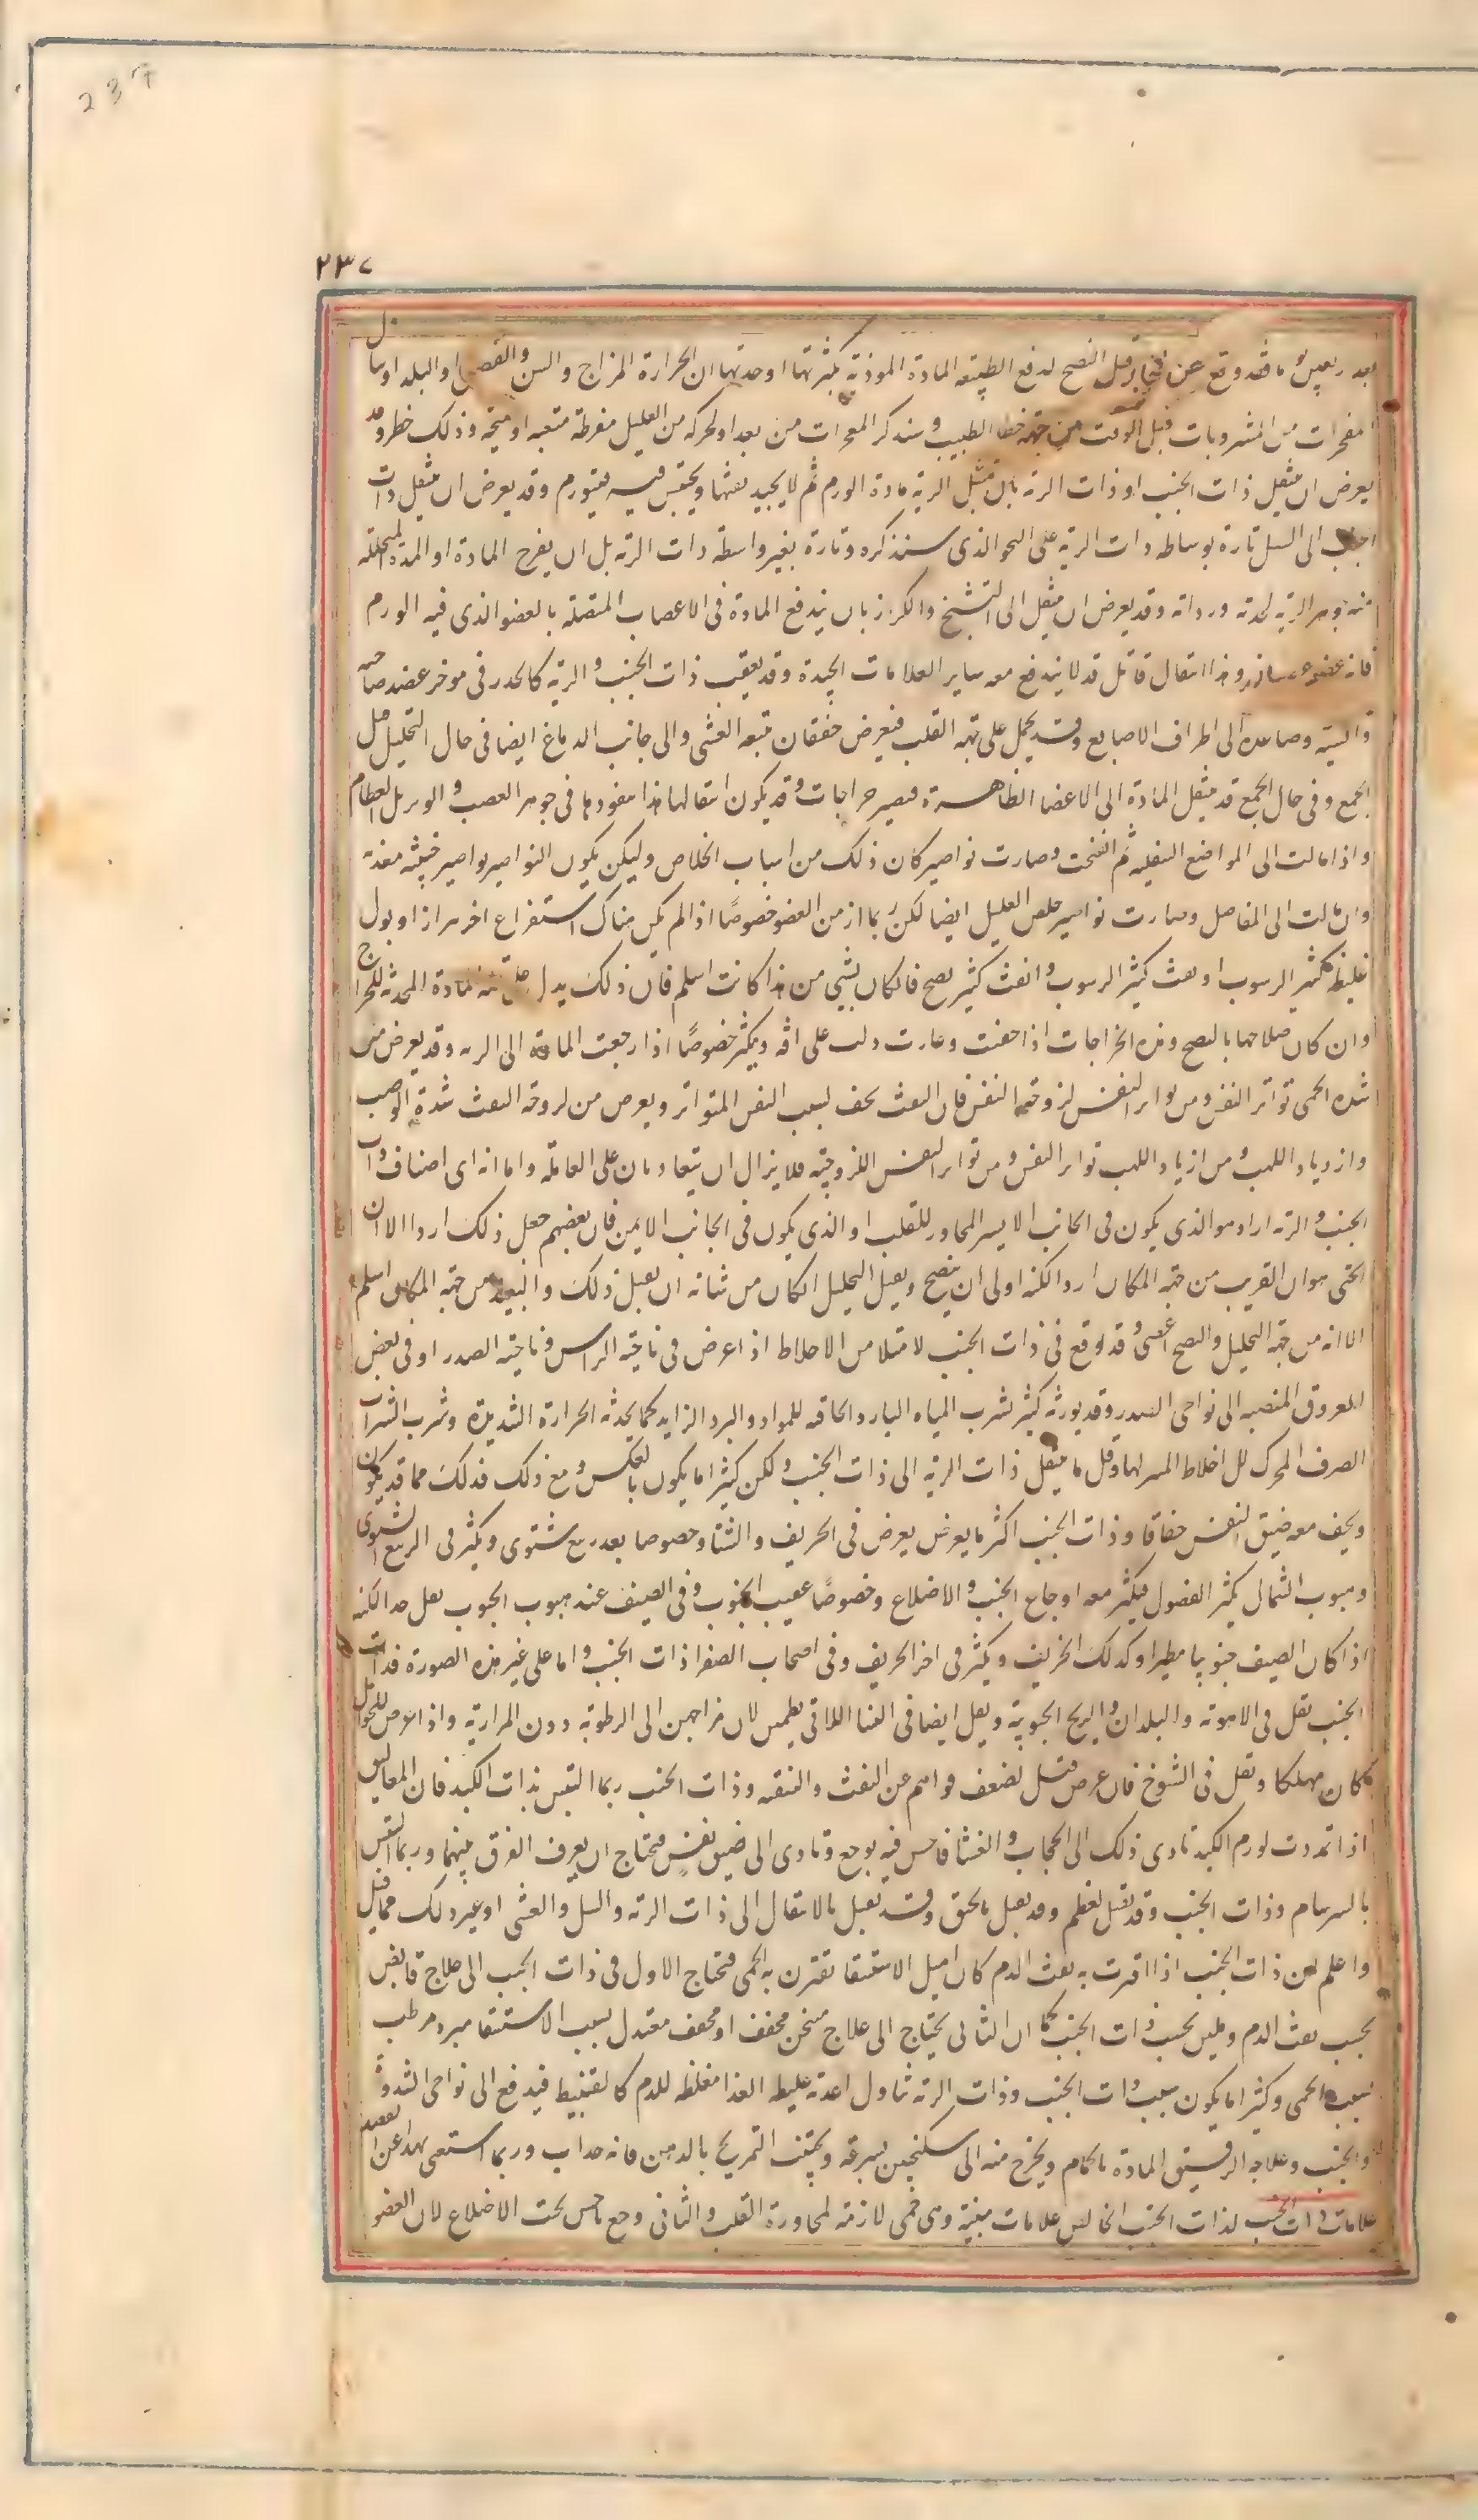 237
٢٣٧
بعد ربعين يوما فقد وقع عن انفجار قبل النضج لدفع الطبيعة المادة الموذية لكثرتها او حدتها ان الحرارة المزاج والسن والفصل او البلد او تناول
المفجرات من المشروبات قبل الوقت من جهة خطا الطبيب وسنذكر المفجرات من بعد او لحركة من العليل مفرطة متعبة او صيحة وذلك خطر وقد
يعرض ان ينتقل ذات الجنب او ذات الرية بان تقبل الرية مادة الورم ثم لا يجيد نفثها ويحتبس فيه فيتورم وقد يعرض ان ينتقل ذات
الجنب الى السل تارة بوساطه ذات الرية على النحو الذى سنذكره وتارة بغير واسطة ذات الرية بل ان يقرح المادة او المدة المتحللة
منه جوهر الرية لحدته ورداته وقد يعرض ان ينتقل الى التشنج والكزاز بان يندفع المادة فى الاعصاب المتصلة بالعضو الذى فيه الورم
فانه عضو عصبانى وهذا انتقال قاتل قد لا يندفع معه ساير العلامات الجيدة وقد يعقب ذات الجنب والرية كالخدر فى موخر عضد صاحبه
وانسيه وصاعده الى اطراف الاصابع وقد يحمل على جهة القلب فيعرض خفقان يتبعه الغشى والى جانب الدماغ ايضا فى حال التحليل قبل
الجمع وفى حال الجمع قد ينتقل المادة الى الاعضا الظاهرة فيصير خراجات وقد يكون انتقالها هذا بنفوذها فى جوهر العصب والوتر بل العظام
واذا مالت الى المواضع السفلية ثم انفتحت وصارت نواصير كان ذلك من اسباب الخلاص وليكن يكون النواصير بواصير خبيثة معدية
وان مالت الى المفاصل وصارت نواصير خلص العليل ايضا لكن ربما ازمن العضو خصوصا اذا لم يكن هناك استفراغ اخر براز او بول
غليظ كثير الرسوب او نفث كثير الرسوب وانفث كثير نضج فان كان شيى من هذا كانت اسلم فان ذلك يدل على قلة المادة المحدثة للخراج
وان كان صلاحها بالنضج وهذه الخراجات اذا خفت وغارت دلت على افة وبكثر خصوصا اذا رجعت المادة الى الرية وقد يعرض من
شدة الحمى تواتر النفس ومن تواتر النفس لزوجة النفث فان النفث يجف لسبب النفس المتواتر ويعرض من لزوجة النفث شدة الوصب
وازدياد اللهب ومن ازدياد اللهب تواتر النفس ومن تواتر النفس اللزوجة فلا يزال ان يتعاودان على العاملة واما انه اى اصناف ذات
الجنب والرية اردا هو الذى يكون فى الجانب الايسر المجاور للقلب او الذى يكون فى الجانب الايمن فان بعضهم جعل ذلك اردا الا ان
الحق هو ان القريب من جهة المكان اردا لكنه اولى ان ينضج ويقبل التحليل ان كان من شانه ان يقبل ذلك والبعيد من جهة المكان اسلم
الا انه من جهة التحليل والنضج اعصى وقد توقع فى ذات الجنب لامتلا من الاخلاط اذا عرض فى ناحية الراس وناحية الصدر او فى بعض
العروق المنصبة الى نواحى الصدر وقد يورثه كثير شرب المياه البارد الحاقنة للمواد والبرد الزايد كما يحدثه الحرارة الشديدة وشرب الشراب
الصرف المحرك للاخلاط المثير لها وقل ما ينتقل ذات الرية الى ذات الجنب ولكن كثيرا ما يكون بالعكس ومع ذلك فذلك مما قد يكون
ويجف معه ضيق النفس خفاقا وذات الجنب اكثر ما يعرض يعرض فى الخريف والشتا وخصوصا بعد ربيع شتوى ويكثر فى الربيع الشتوى
وهبوب الشمالى يكثر الفضول فيكثر معه اوجاع الجنب والاضلاع وخصوصا عقيب الجنوب وفى الصيف عند هبوب الجنوب يقل جدا لكنه
اذا كان الصيف جنوبيا مطيرا وكذلك الخريف ويكثر فى اخر الخريف وفى اصحاب الصفرا ذات الجنب واما على غير هذه الصورة فذات
الجنب تقل فى الاهوية والبلدان والريح الجنوبية ويقل ايضا فى النسا اللاتى يطمثن لان مزاجهن الى الرطوبة دون المرارية واذا عرض للحوامل
كان مهلكا ويقل فى الشيوخ فان عرض قتل لضعف قواهم عن النفث والتنقية وذات الجنب ربما التبس بذات الكبد فان المعاليق
اذا تمددت لورم الكبد تادى ذلك الى الحجاب والغشا فاحس فيه بوجع وتادى الى ضيق نفس فيحتاج ان يعرف الفرق بينهما وربما التبس
بالسرسام وذات الجنب وقد تقتل لعظم وقد يقتل بالخنق وقد يقتل بالانتقال الى ذات الرية والسل والغشى او غير ذلك مما قيل
واعلم ان ذات الجنب اذا اقترن به نفث الدم كان اميل الاستسقا يقترن به الحمى فيحتاج الاول فى ذات الجنب الى علاج قابض
بحسب نفث الدم وملين بحسب ذات الجنب كما ان الثانى يحتاج الى علاج مسخن مجفف او مجفف معتدل لسبب الاستسقا مبرد مرطب
لسبب الحمى وكثيرا ما يكون سبب ذات الجنب وذات الرية تناول اغذية غليظة الغذا مغلظة للدم كالقنبيط فيدفع الى نواحى الثندوة
والجنب وعلاجه الرقيق المادة بالحمام ويخرج منه الى سكنجبين بسرعة ويجتنب التمريخ بالدهن فانه جذاب وربما استغنى بهذا عن الفصد
علامات ذات الجنب لذات الجنب الخالص علامات مبينة وهى حمى لازمة لمجاورة القلب والثانى وجع ناخس تحت الاضلاع لان العضو